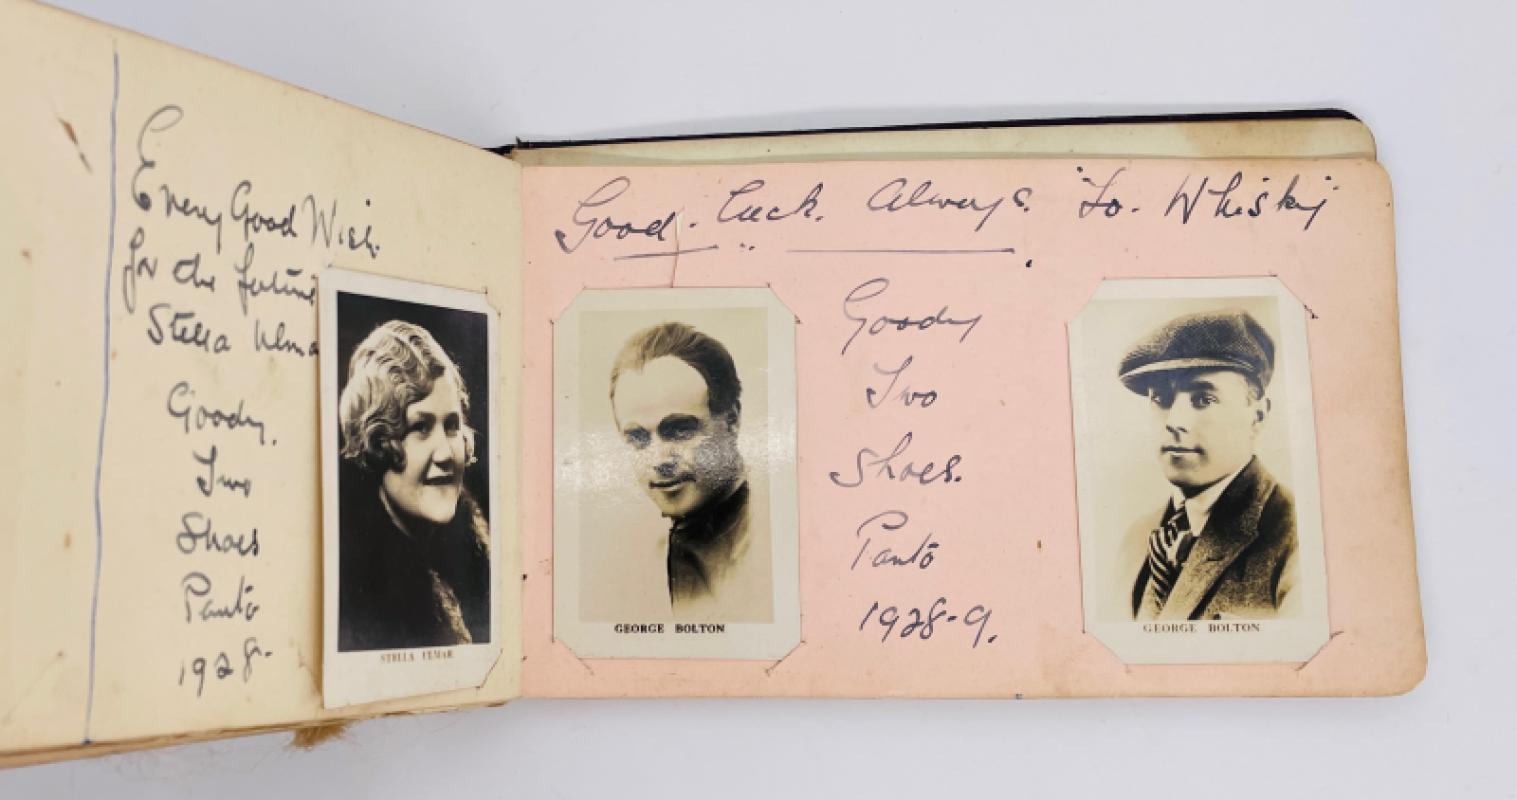 Every Good Wish.
for the future
Stella Ulma
Goody.
Two
Shoes
Panto
1928.
STELLA ULMAR
Good. Luck. Always. "To. Whisky"
Goody
Two
Shoes.
Panto
1928-9.
GEORGE BOLTON
GEORGE BOLTON